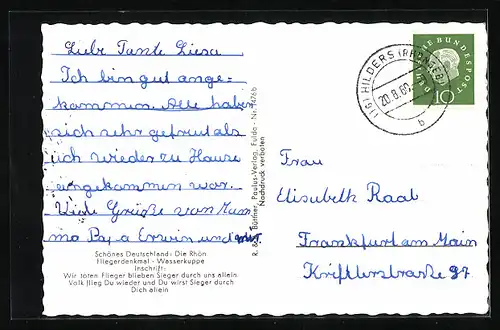 Liebe Tante Liesa
Ich bin gut ange=
kommen. Alle haben
sich sehr gefreut als
ich wieder zu Hause
angekommen war.
Viele Grüße von Mam
ma Papa Erwin und
Schönes Deutschland - Die Rhön
Fliegerdenkmal - Wasserkuppe
Inschrift:
Wir toten Flieger blieben Sieger durch uns allein
Volk flieg Du wieder und Du wirst Sieger durch
Dich allein
Büttner, Paulus-Verlag, Fulda - Nr. 1476b
Nachdruck verboten
(16) HILDERS (RHÖNGEB)
20.8.60
b
DEUTSCHE BUNDESPOST
10
Frau
Elisabeth Raab
Frankfurt am Main
Kriftlerstraße 97